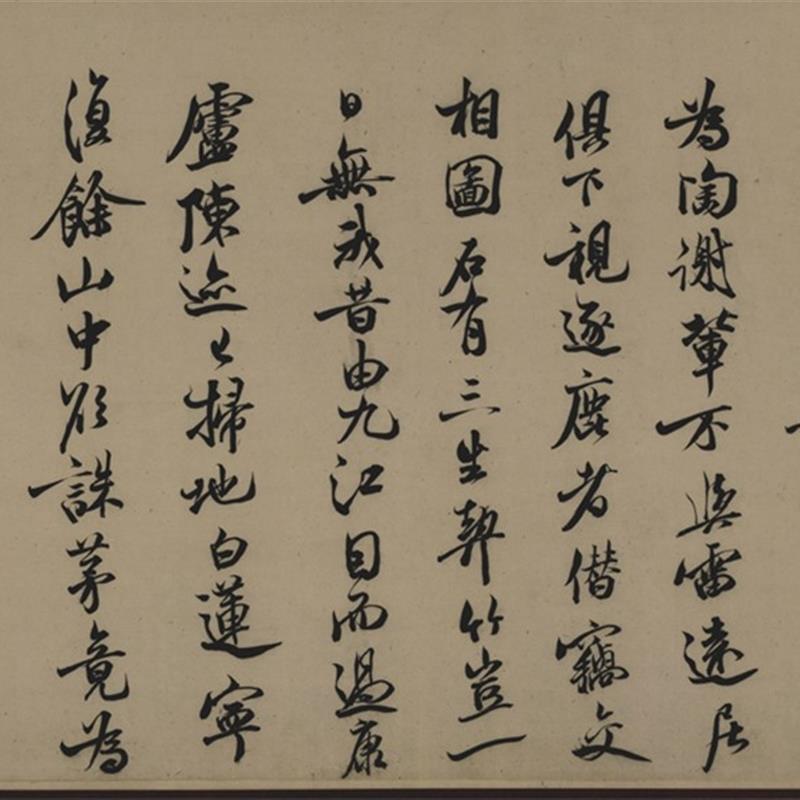 為陶謝輩不與雷遠居
俱下視逐塵者僭竊交
相圖石有三生契竹豈一
日無我昔由九江目而過康
廬陳迹已掃地白蓮寧
復餘山中欲誅茅竟為